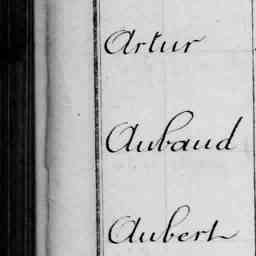 Artur
Aubaud
Aubert